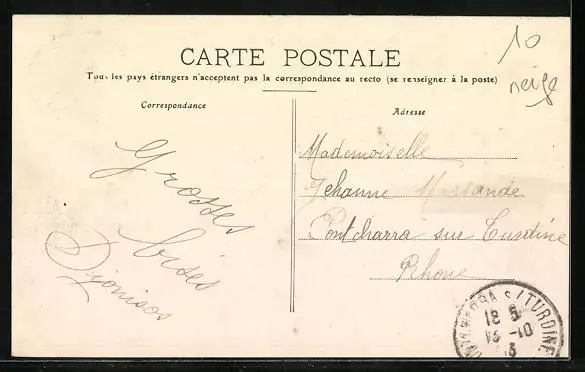 10
neige
CARTE POSTALE
Tous les pays étrangers n'acceptent pas la correspondance au recto (se renseigner à la poste)
Correspondance
Adresse
Grosses
bises
Dionisos
Mademoiselle
Jehanne
Pontcharra sur Turdine
Rhone
S/TURDINE
18
-10